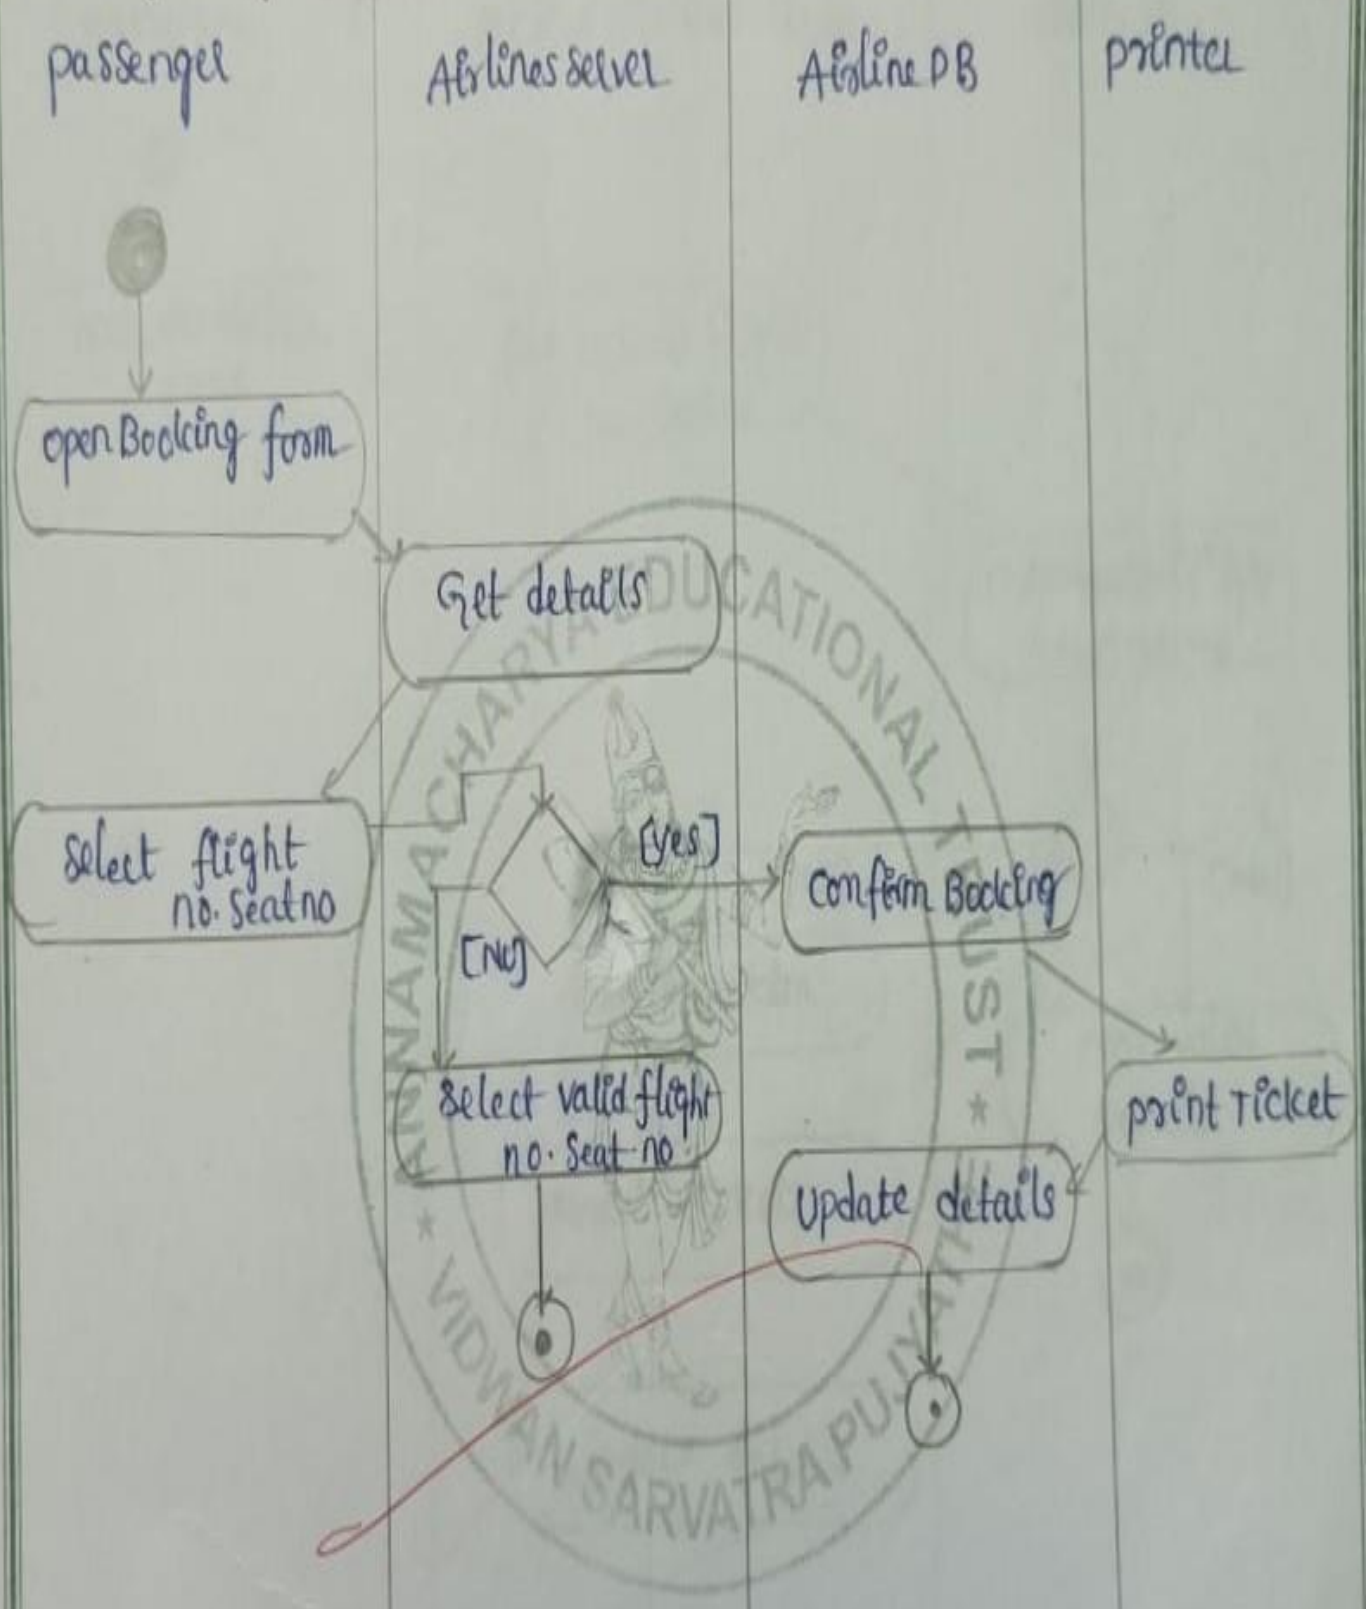 passenger
Airlines server
Airline DB
printer
open Booking form
Get details
Select flight
no. Seat no
[Yes]
Confirm Booking
[No]
Select valid flight
no. Seat no
print Ticket
Update details
ANNAMACHARYA EDUCATIONAL TRUST
* VIDWAN SARVATRA PUJYATHE *